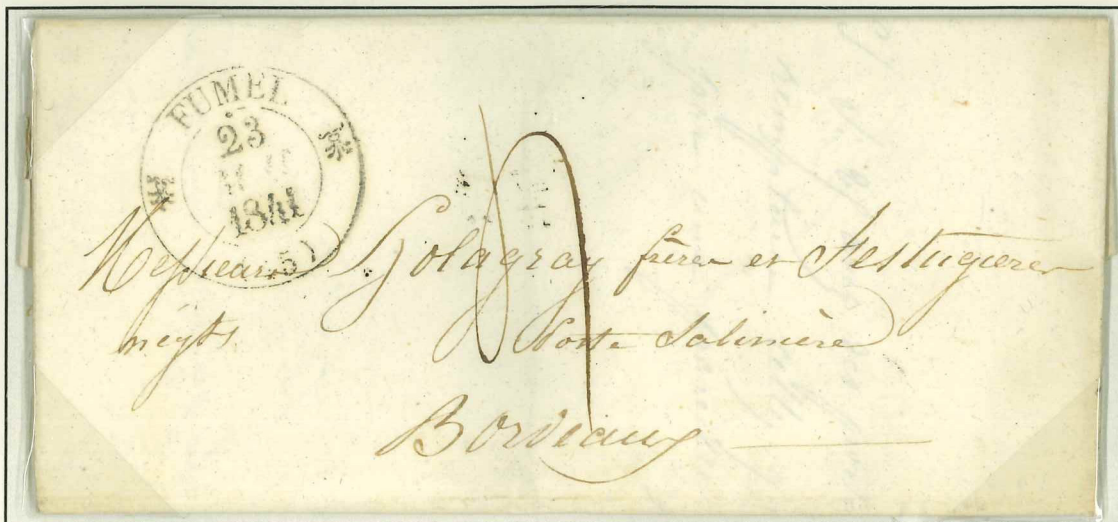 FUMEL
23
1841
Messieurs Solagray frères et Festugieres
négts
Porte Salinière
Bordeaux